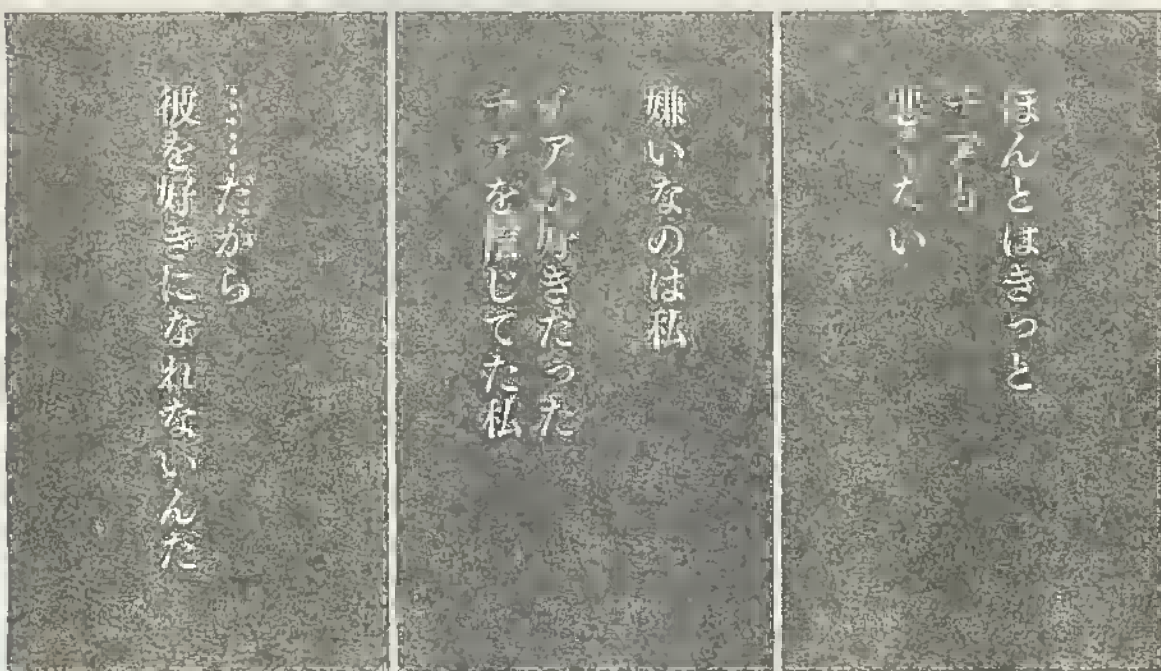 ほんとはきっと
悪くない
嫌いなのは私
チアが好きだった
チアを信じてた私
……だから
彼を好きになれないんだ